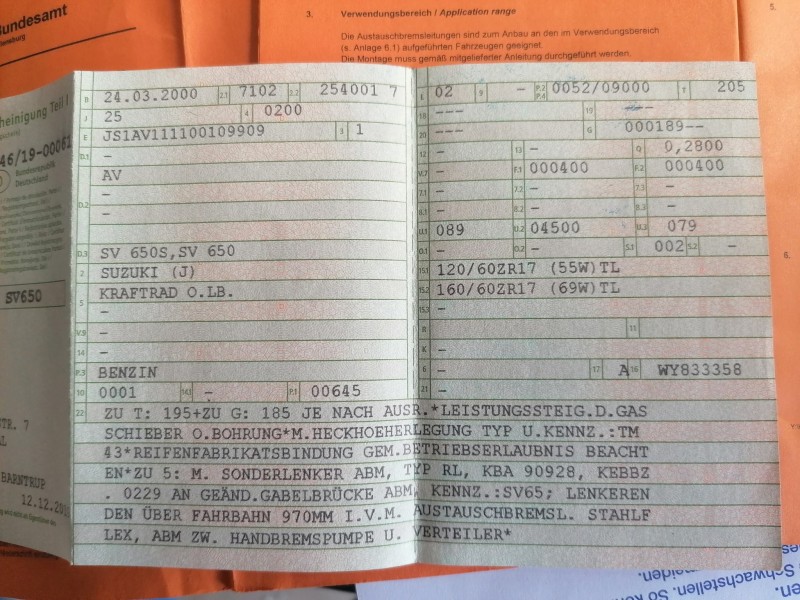 Bundesamt
3. Verwendungsbereich / Application range
Die Austauschbremsleitungen sind zum Anbau an den im Verwendungsbereich
(s. Anlage 6.1) aufgeführten Fahrzeugen geeignet.
Die Montage muss gemäß mitgelieferter Anleitung durchgeführt werden.
5.
6.
heinigung Teil I
46/19-00061
Bundesrepublik
Deutschland
SV650
STR. 7
BARNTRUP
B 24.03.2000 2.1 7102 2.2 254001 7
J 25 4 0200
E JS1AV111100109909 3 1
D.1 -
AV
-
D.2 -
D.3 SV 650S,SV 650
2 SUZUKI (J)
5 KRAFTRAD O.LB.
-
V.9 -
14 -
P.3 BENZIN
10 0001 14.1 - P.1 00645
L 02 9 - P.2 P.4 0052/09000 T 205
18 --- 19 ---
20 --- G 000189--
12 - 13 - Q 0,2800
V.7 - F.1 000400 F.2 000400
7.1 - 7.2 - 7.3 -
8.1 - 8.2 - 8.3 -
U.1 089 U.2 04500 U.3 079
O.1 - O.2 - S.1 002 S.2 -
15.1 120/60ZR17 (55W)TL
15.2 160/60ZR17 (69W)TL
15.3 -
R 11
K -
6 - 17 A 16 WY833358
21 -
22 ZU T: 195+ZU G: 185 JE NACH AUSR.*LEISTUNGSSTEIG.D.GAS
SCHIEBER O.BOHRUNG*M.HECKHOEHERLEGUNG TYP U.KENNZ.:TM
43*REIFENFABRIKATSBINDUNG GEM.BETRIEBSERLAUBNIS BEACHT
EN*ZU 5: M. SONDERLENKER ABM, TYP RL, KBA 90928, KEBBZ
. 0229 AN GEÄND.GABELBRÜCKE ABM, KENNZ.:SV65; LENKEREN
DEN ÜBER FAHRBAHN 970MM I.V.M. AUSTAUSCHBREMSL. STAHLF
LEX, ABM ZW. HANDBREMSPUMPE U. VERTEILER*